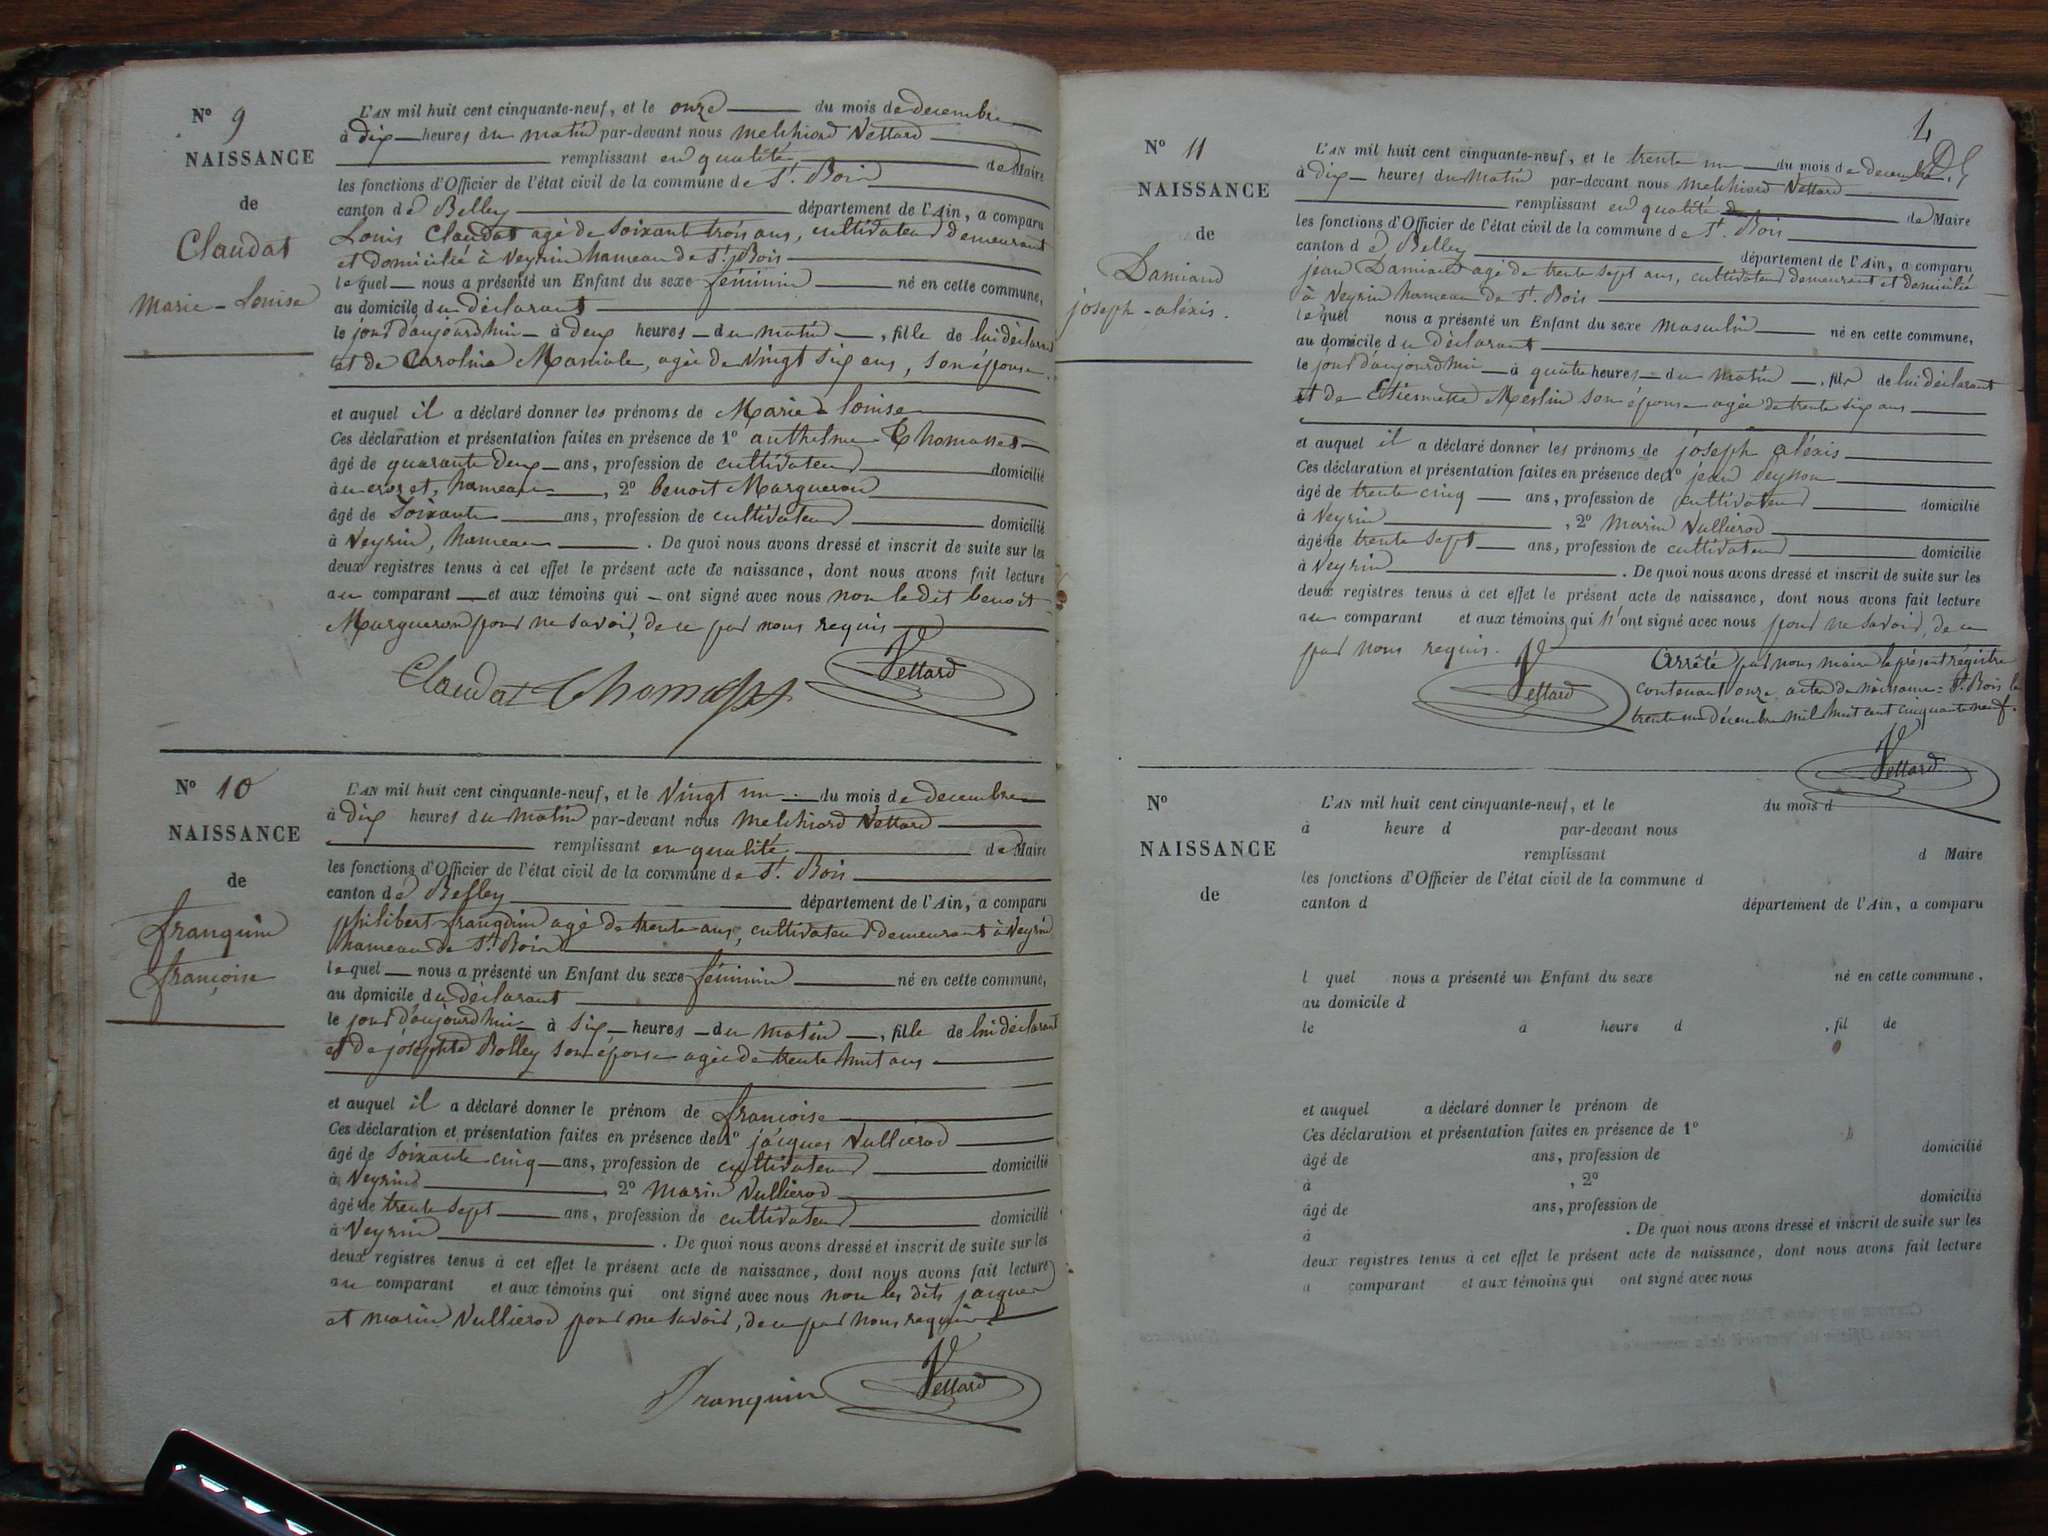 N° 9
NAISSANCE
de
Claudat
Marie - Louise
L'AN mil huit cent cinquante-neuf, et le onze du mois de decembre
à dix heures du matin par-devant nous Melchiord Vettard
remplissant en qualité de Maire
les fonctions d'Officier de l'état civil de la commune de St. Bois
canton de Belley département de l'Ain, a comparu
Louis Claudat agé de soixante trois ans, cultivateur demeurant
et domicilié à Veyrin hameau de St. Bois
lequel nous a présenté un Enfant du sexe féminin né en cette commune,
au domicile du déclarant
le jour d'aujourdhui à deux heures du matin, fille de lui déclarant
et de Caroline Maniale, agée de vingt six ans, son épouse.
et auquel il a déclaré donner les prénoms de Marie Louise
Ces déclaration et présentation faites en présence de 1° anthelme Thomasset
âgé de quarante deux ans, profession de cultivateur domicilié
à , hameau, 2° benoit Marqueron
âgé de soixante ans, profession de cultivateur domicilié
à Veyrin, hameau. De quoi nous avons dressé et inscrit de suite sur les
deux registres tenus à cet effet le présent acte de naissance, dont nous avons fait lecture
au comparant et aux témoins qui ont signé avec nous non le dit benoit
Marqueron pour ne savoir, de ce par nous requis
Claudat Thomasset Vettard
N° 10
NAISSANCE
de
franquin
françoise
L'AN mil huit cent cinquante-neuf, et le vingt un du mois de decembre
à dix heures du matin par-devant nous Melchiord Vettard
remplissant en qualité de Maire
les fonctions d'Officier de l'état civil de la commune de St. Bois
canton de Belley département de l'Ain, a comparu
philibert franquin agé de trente ans, cultivateur demeurant à Veyrin
hameau de St. Bois
lequel nous a présenté un Enfant du sexe féminin né en cette commune,
au domicile du déclarant
le jour d'aujourdhui à six heures du matin, fille de lui déclarant
et de joséphte Bolley son épouse agée de trente huit ans
et auquel il a déclaré donner le prénom de françoise
Ces déclaration et présentation faites en présence de 1° jacques Vullierod
âgé de soixante cinq ans, profession de cultivateur domicilié
à Veyrin, 2° marin Vullierod
âgé de trente sept ans, profession de cultivateur domicilié
à Veyrin. De quoi nous avons dressé et inscrit de suite sur les
deux registres tenus à cet effet le présent acte de naissance, dont nous avons fait lecture
au comparant et aux témoins qui ont signé avec nous non les dits jacques
et marin Vullierod pour ne savoir, de ce par nous requis
Franquin Vettard
4
N° 11
NAISSANCE
de
Damiand
joseph - aléxis.
L'AN mil huit cent cinquante-neuf, et le trente un du mois de decembre
à dix heures du matin par-devant nous melchiord Vettard
remplissant en qualité de Maire
les fonctions d'Officier de l'état civil de la commune de St. Bois
canton de Belley département de l'Ain, a comparu
jean Damiand agé de trente sept ans, cultivateur demeurant et domicilié
à Veyrin hameau de St. Bois
lequel nous a présenté un Enfant du sexe masculin né en cette commune,
au domicile du déclarant
le jour d'aujourdhui à quatre heures du matin, fils de lui déclarant
et de Etiennette Merlin son épouse agée de trente six ans
et auquel il a déclaré donner les prénoms de joseph aléxis
Ces déclaration et présentation faites en présence de 1° jean
âgé de trente cinq ans, profession de cultivateur domicilié
à Veyrin, 2° marin Vullierod
âgé de trente sept ans, profession de cultivateur domicilié
à Veyrin. De quoi nous avons dressé et inscrit de suite sur les
deux registres tenus à cet effet le présent acte de naissance, dont nous avons fait lecture
au comparant et aux témoins qui n'ont signé avec nous pour ne savoir, de ce
par nous requis.
Vettard
Arrêté par nous maire le présent régistre
contenant onze actes de naissance = St. Bois le
trente un décembre mil huit cent cinquante neuf.
Vettard
N°
NAISSANCE
de
L'AN mil huit cent cinquante-neuf, et le du mois d
à heure d par-devant nous
remplissant d Maire
les fonctions d'Officier de l'état civil de la commune d
canton d département de l'Ain, a comparu
l quel nous a présenté un Enfant du sexe né en cette commune,
au domicile d
le à heure d , fil de
et auquel a déclaré donner le prénom de
Ces déclaration et présentation faites en présence de 1°
âgé de ans, profession de domicilié
à , 2°
âgé de ans, profession de domicilié
à . De quoi nous avons dressé et inscrit de suite sur les
deux registres tenus à cet effet le présent acte de naissance, dont nous avons fait lecture
a comparant et aux témoins qui ont signé avec nous